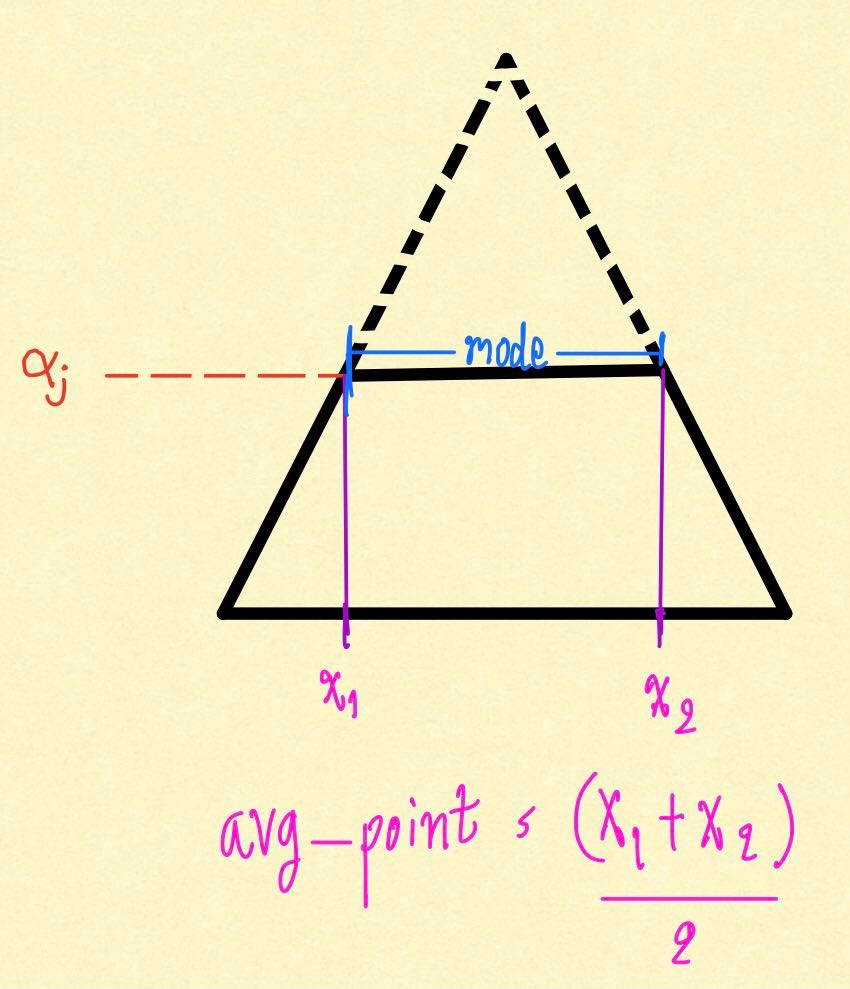 mode
αj
x1 x2
avg_point = (x1 + x2)
2